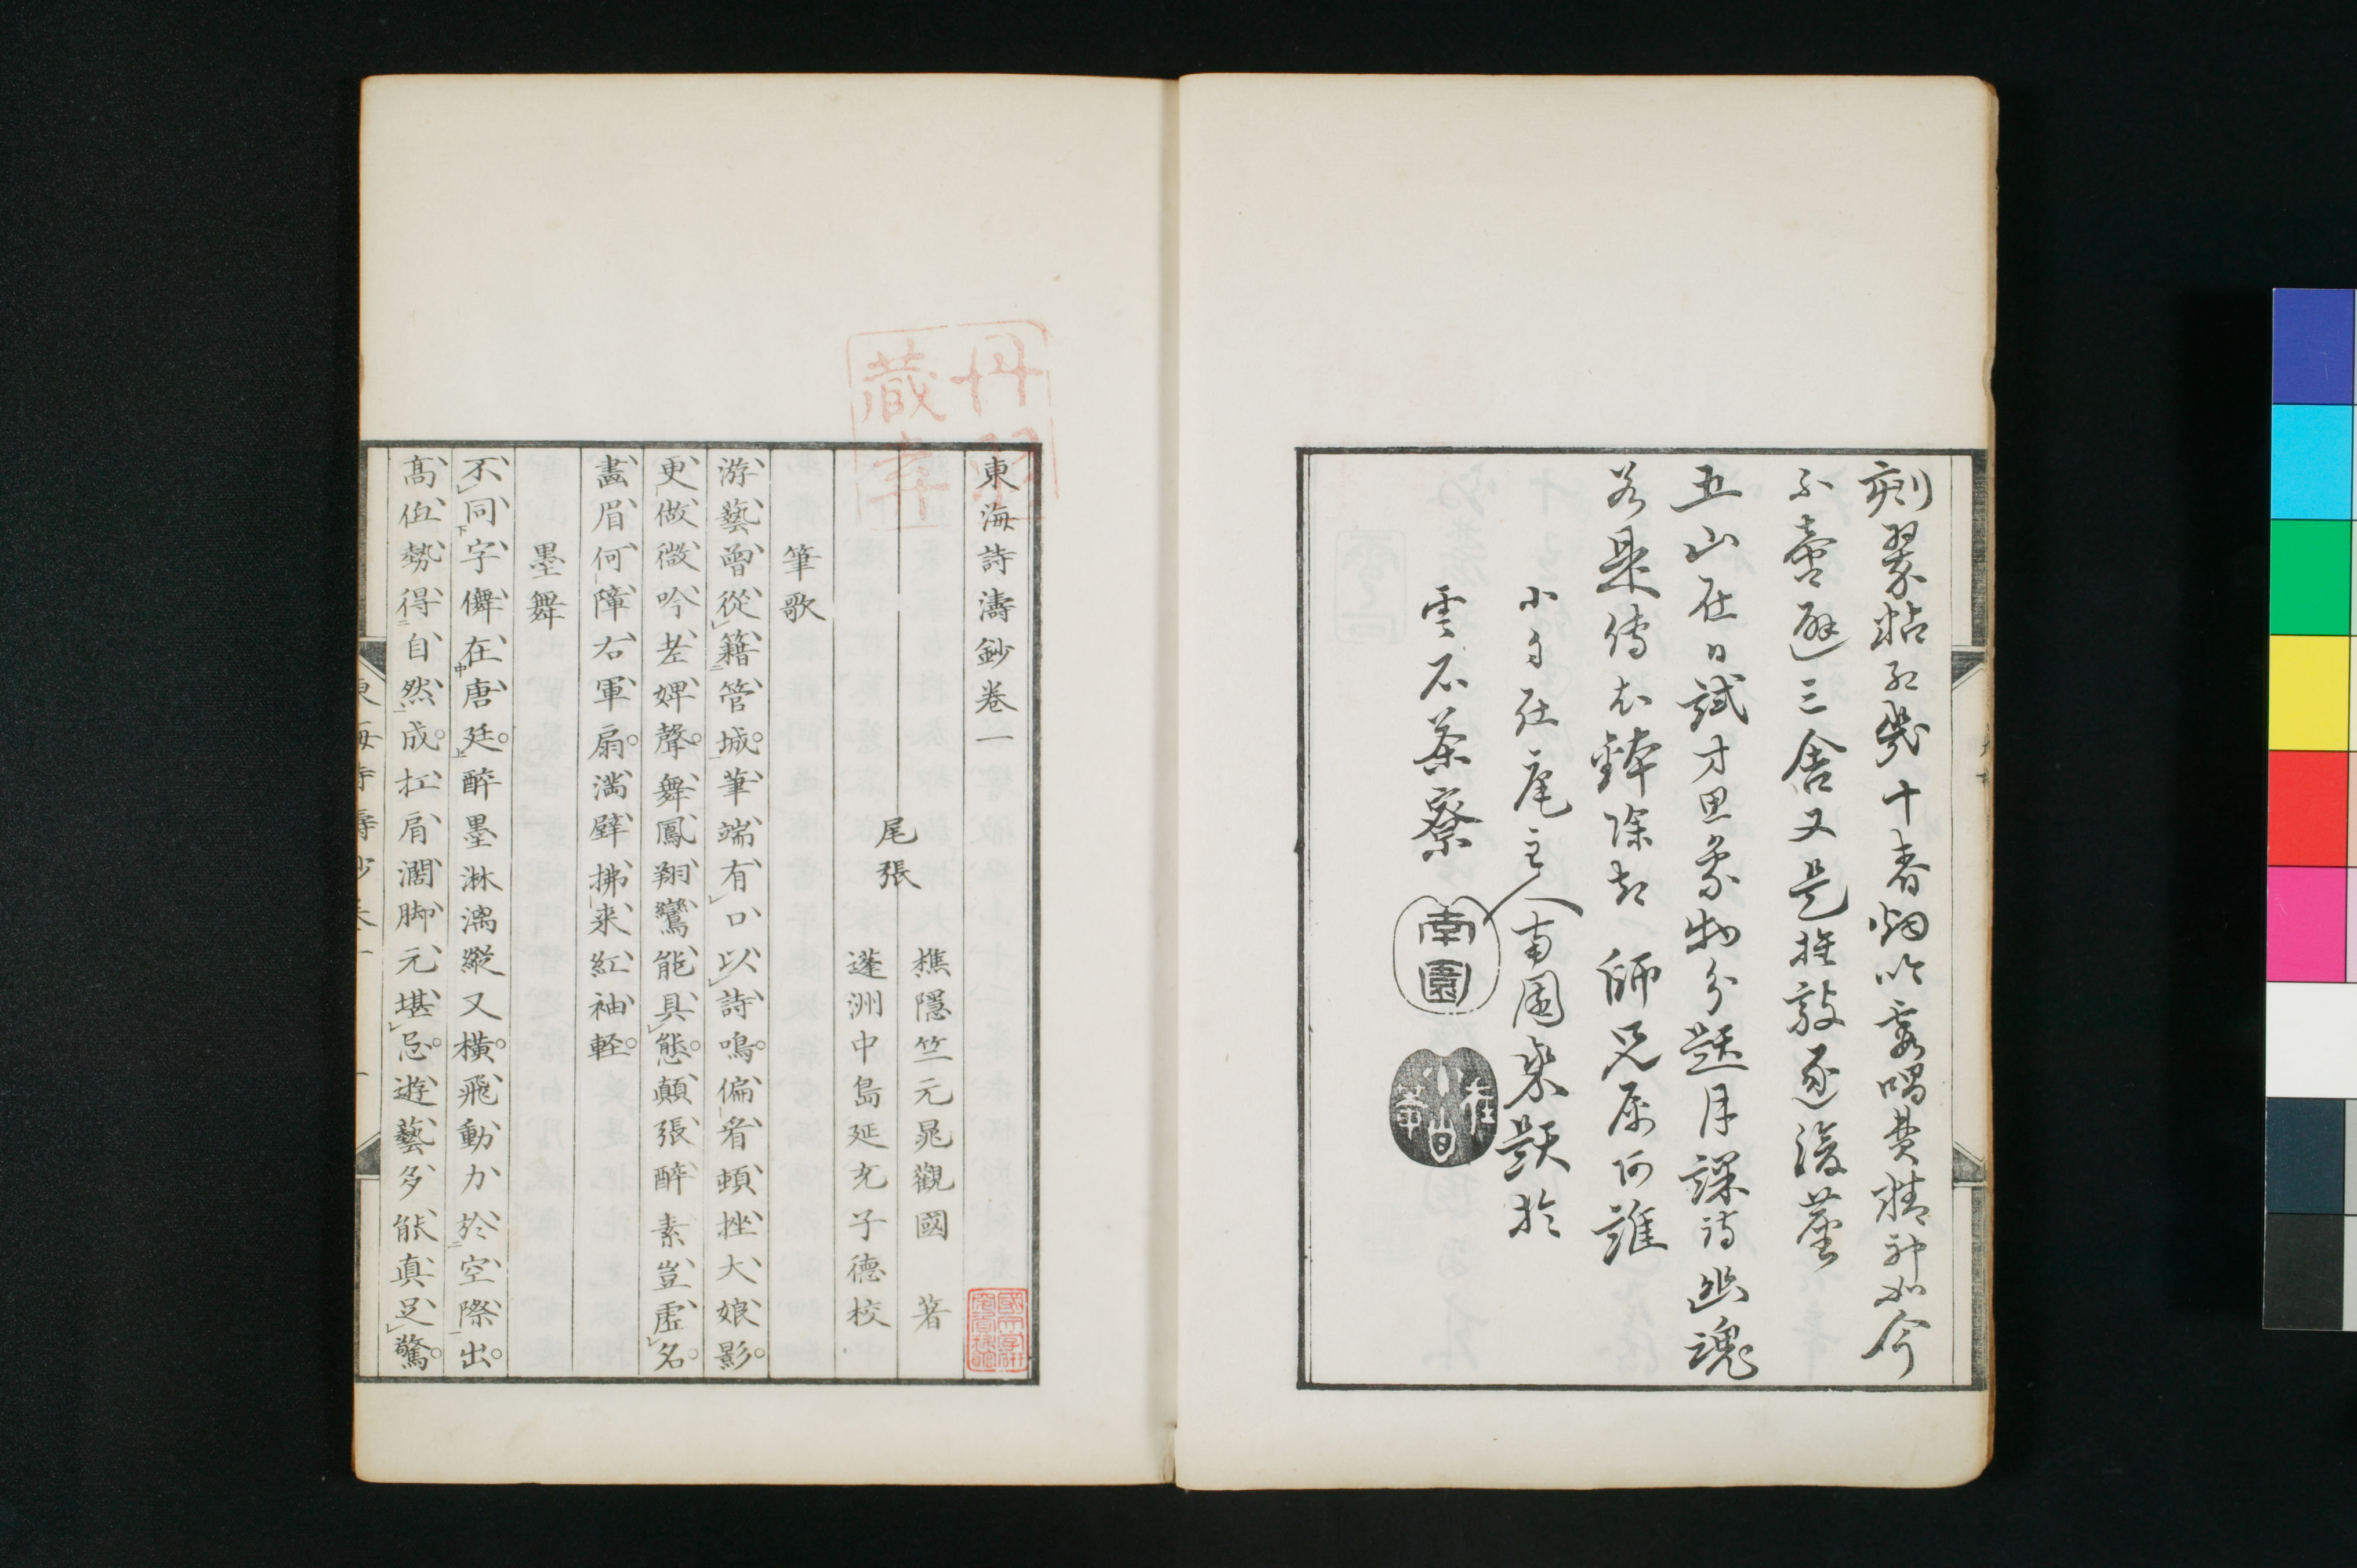 刻翠粘紅幾十春烟吟雲唱費精神如今
不啻避三舍又是推敲逐後塵
五山在日試才思象物分題月課詩幽魂
若是傳衣鉢除却師兄屬阿誰
小白在庵主人南園 題於
雲石茶寮
南園
東海詩濤鈔卷一
尾張
樵隱竺元晁觀國 著
蓬洲中島延充子德校
筆歌
游藝曾從籍管城筆端有口以詩鳴偏看頓挫大娘影
更做微吟老婢聲舞鳳翔鸞能具態顛張醉素豈虛名
畫眉何障右軍扇滿壁拂来紅袖軽
墨舞
不同字儛在唐廷醉墨淋漓縱又橫飛動力於空際出
高低勢得自然成扛肩濶脚元堪忌遊藝多能真足驚
東海詩濤鈔卷一 一